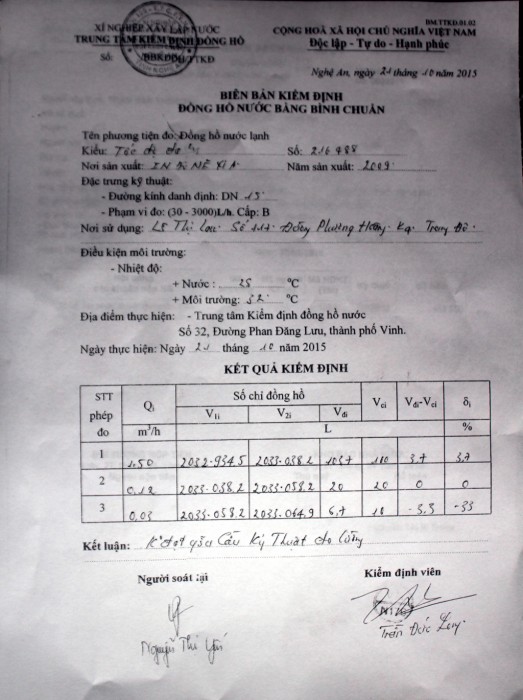 BM.TTKĐ.01.02
XÍ NGHIỆP XÂY LẮP NƯỚC
TRUNG TÂM KIỂM ĐỊNH ĐỒNG HỒ
CỘNG HOÀ XÃ HỘI CHỦ NGHĨA VIỆT NAM
Độc lập - Tự do - Hạnh phúc
Số: /BBKĐĐH/TTKĐ
Nghệ An, ngày 21 tháng 10 năm 2015
BIÊN BẢN KIỂM ĐỊNH
ĐỒNG HỒ NƯỚC BẰNG BÌNH CHUẨN
Tên phương tiện đo: Đồng hồ nước lạnh
Kiểu: Tốc độ đa tia Số: 216988
Nơi sản xuất: INĐÔNÊXIA Năm sản xuất: 2009
Đặc trưng kỹ thuật:
- Đường kính danh định: DN 15
- Phạm vi đo: (30 - 3000)L/h. Cấp: B
Nơi sử dụng: Lê Thị Lan. Số 117. Đường Phương Hoàng. Trung Đô.
Điều kiện môi trường:
- Nhiệt độ:
+ Nước : 25 °C
+ Môi trường: 32 °C
Địa điểm thực hiện: - Trung tâm Kiểm định đồng hồ nước
Số 32, Đường Phan Đăng Lưu, thành phố Vinh.
Ngày thực hiện: Ngày 21 tháng 10 năm 2015
KẾT QUẢ KIỂM ĐỊNH
STT phép đo Qi Số chỉ đồng hồ Vci Vđi-Vci δi
V1i V2i Vđi
m³/h L %
1 1,50 2032.934.5 2033.038.2 103.7 100 3.7 3.7
2 0,12 2033.038.2 2033.058.2 20 20 0 0
3 0,03 2033.058.2 2033.064.9 6,7 10 -3,3 -33
Kết luận: K° đạt yêu Cầu Kỹ Thuật đo lường
Người soát lại Kiểm định viên
Nguyễn Thị Yến
Trần Đức Long